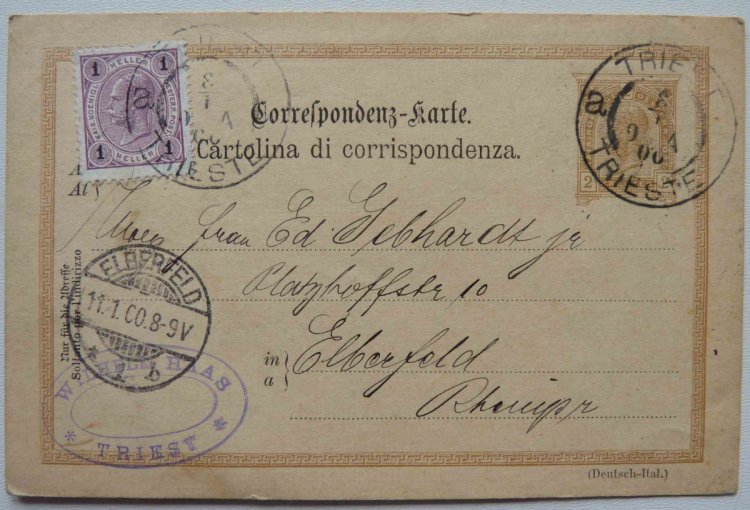 1 1
KAIS. KOENIGL. OESTERR. POST.
HELLER HELLER
1 1
a
8
1
TRIESTE
TRIEST
a
TRIESTE
2
Correspondenz-Karte.
Cartolina di corrispondenza.
Al
frau Ed. Gebhardt jr
Platzhoffstr 10
in
a
Elberfeld
Rheinpr
Nur für die Adresse
Soltanto per l'indirizzo
ELBERFELD
11.1.00.8-9V
* * b
WILHELM HAAS
* TRIEST *
(Deutsch-Ital.)